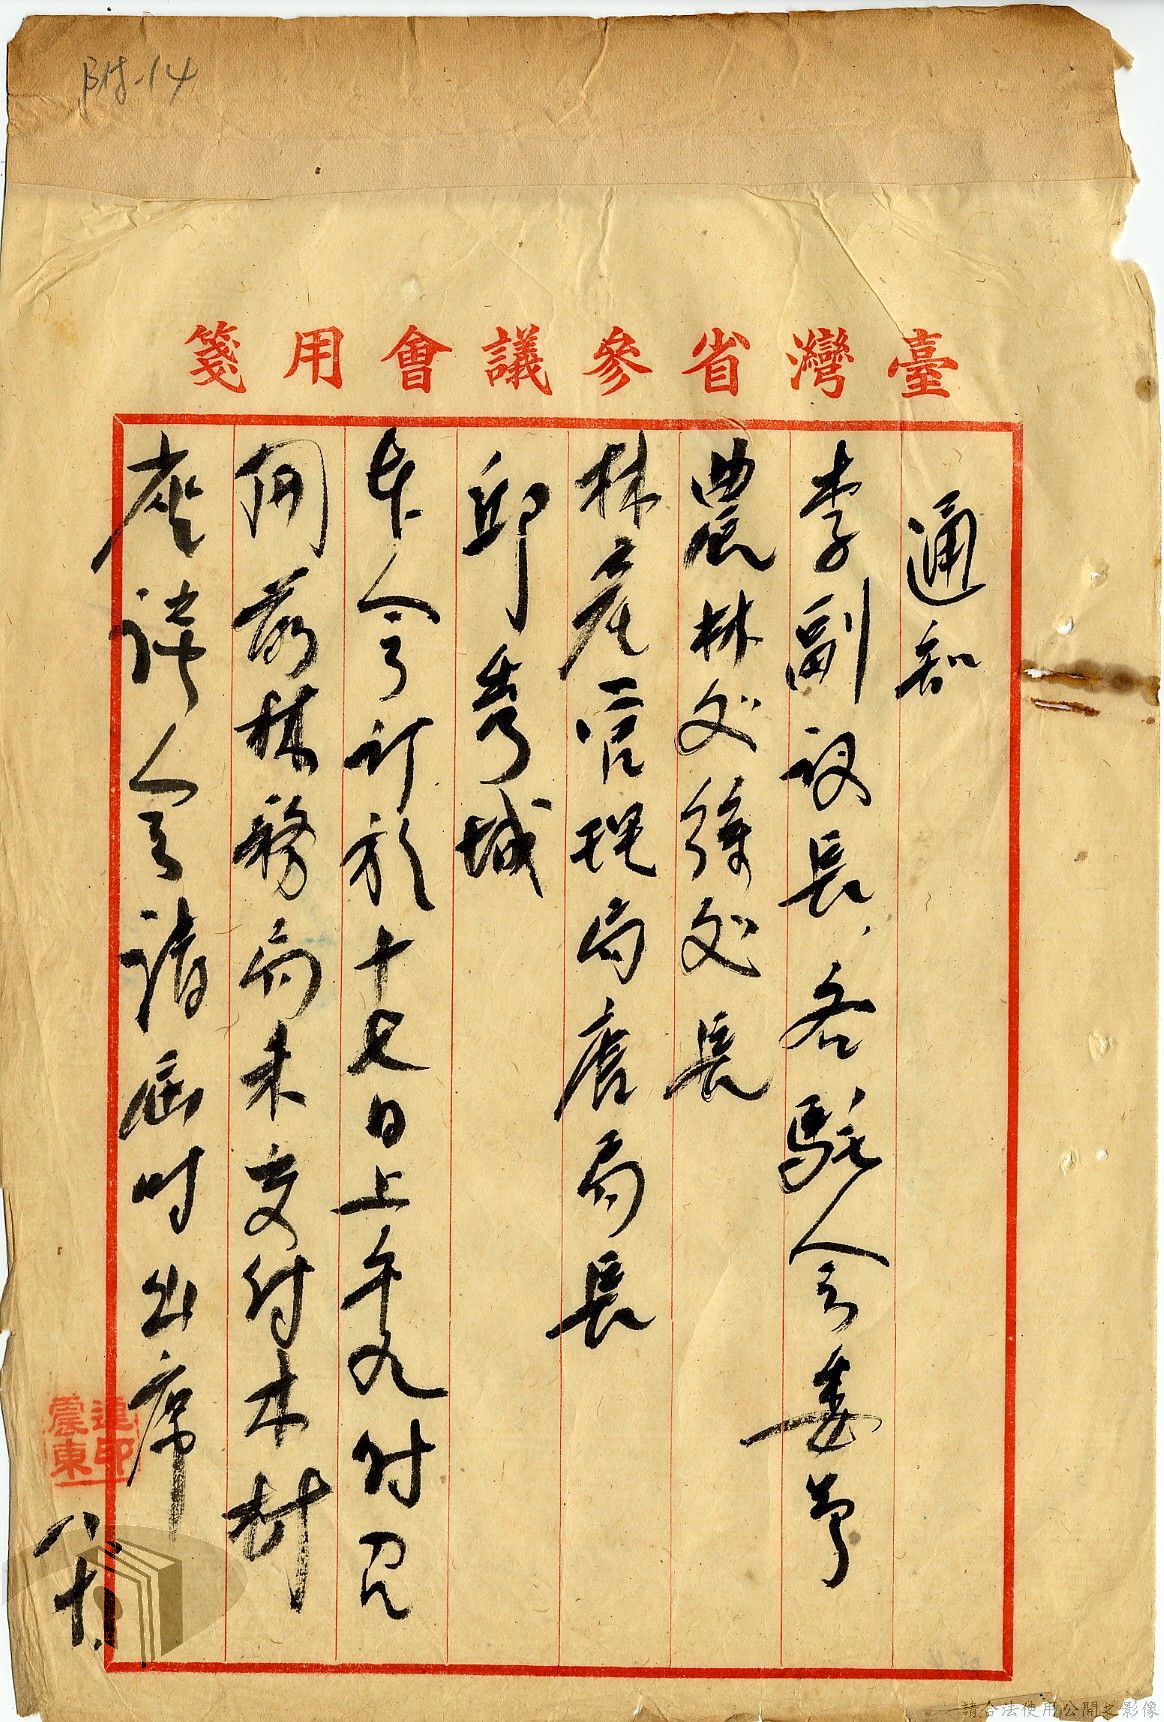 附-14
臺灣省參議會用箋
通知
李副議長、各駐會委員
農林處徐處長
林產管理局唐局長
邱秀城
本會訂於十七日上午九時召
開前林務局未交付木材
座談會請屆時出席
連震東印
八、十
請合法使用公開之影像